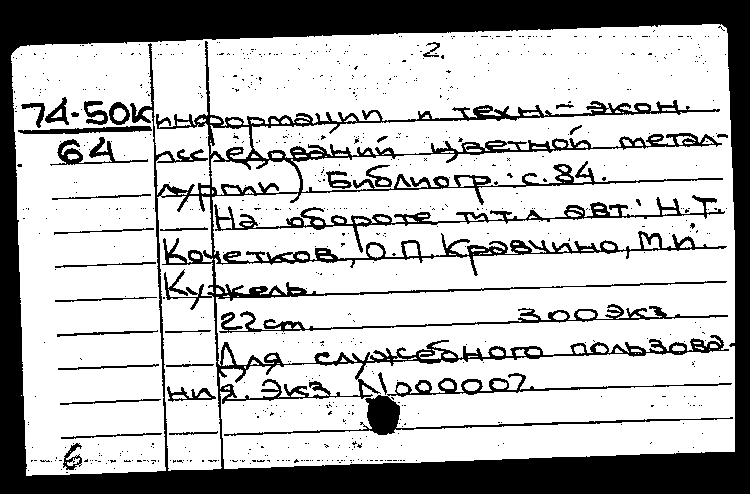 2.
74-50к информации и техн.-экон.
64 исследований цветной метал-
лургии). Библиогр.: с. 84.
На обороте тит. л. авт.: Н.Т.
Кочетков, О.П. Кравчино, М.И.
Кужель.
22 cm. 300 экз.
Для служебного пользова-
ния. Экз. N000007.
6